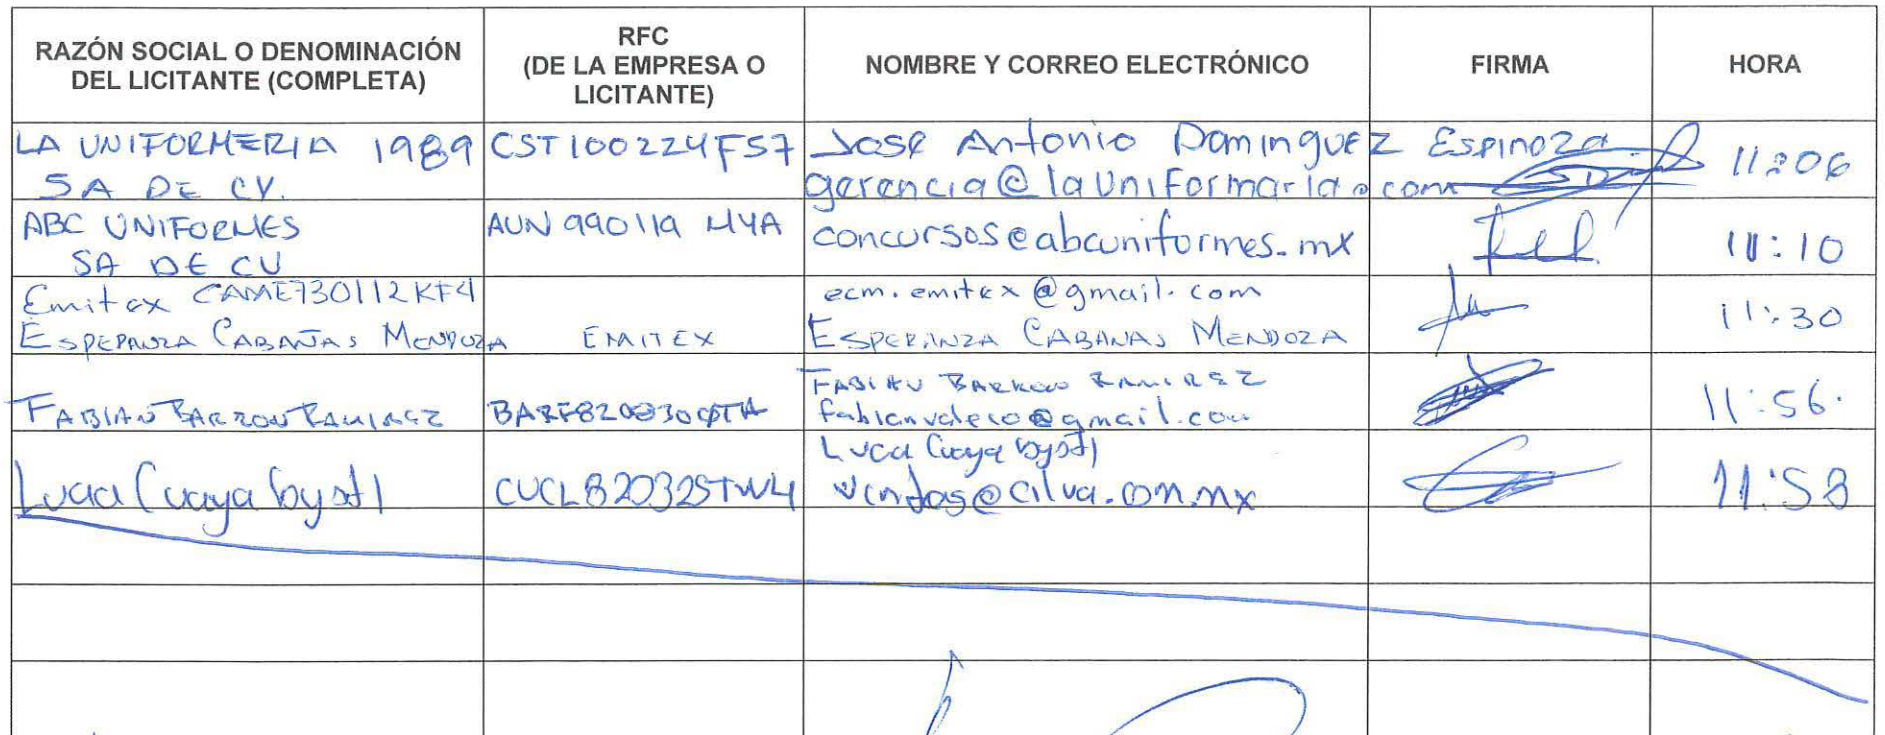 RAZÓN SOCIAL O DENOMINACIÓN
DEL LICITANTE (COMPLETA)
RFC
(DE LA EMPRESA O
LICITANTE)
NOMBRE Y CORREO ELECTRÓNICO
FIRMA
HORA
LA UNIFORMERIA 1989
SA DE CV.
CST100224FS7
José Antonio Dominguez Espinoza
gerencia@launiformaria.com
11:06
ABC UNIFORMES
SA DE CV
AUN 990119 MYA
concursos@abcuniformes.mx
11:10
Emitex CAME730112KF4
ESPERANZA CABAÑAS MENDOZA
EMITEX
ecm.emitex@gmail.com
ESPERANZA CABANAS MENDOZA
11:30
FABIAN BARRON RAMIREZ
FABIAN BARRON RAMIREZ
fabianvaleco@gmail.com
11:56.
Lucia Cuaya
CUCL820325TW4
Lucia Cuaya
ventas@cilva.com.mx
11:58